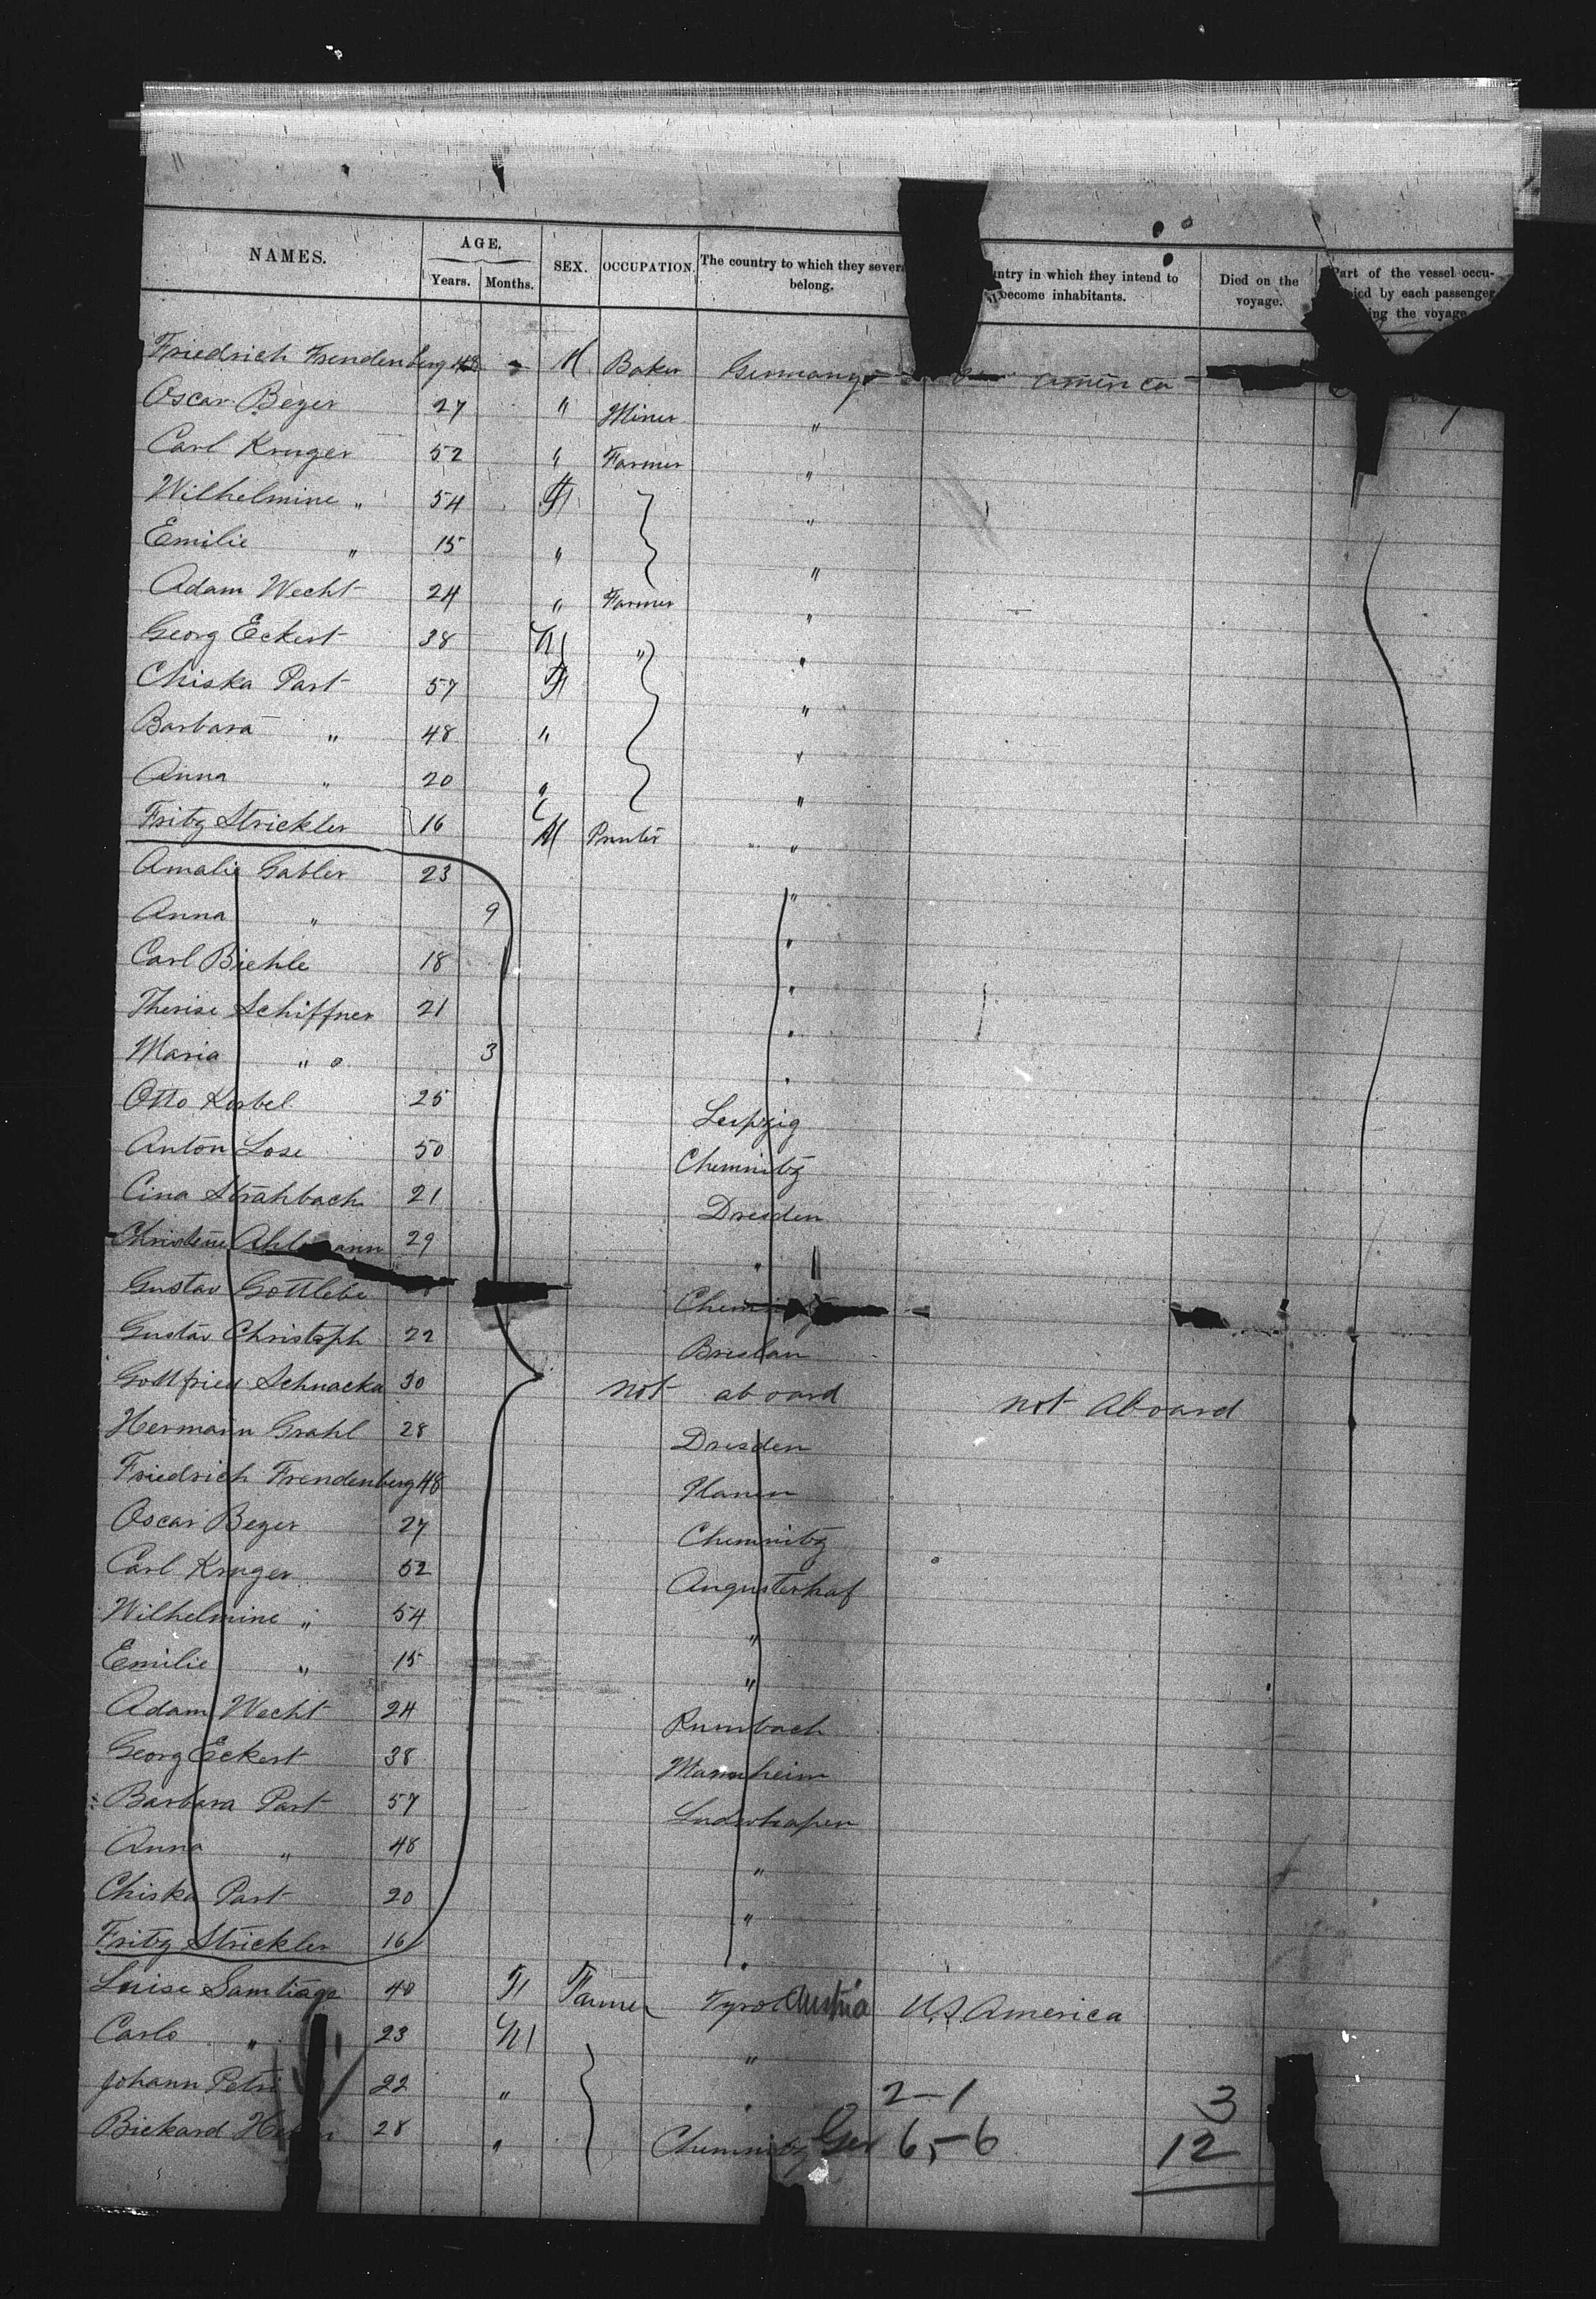 NAMES. AGE. SEX. OCCUPATION. The country to which they sever belong. ntry in which they intend to become inhabitants. Died on the voyage. Part of the vessel occu- pied by each passenger ing the voyage
Years. Months.
Friedrich Frendenberg 48 M Baker Germany America
Oscar Beger 27 " Miner "
Carl Kruger 52 " Farmer "
Wilhelmine " 54 F "
Emilie " 15 " "
Adam Wecht 24 " Farmer "
Georg Eckert 38 M " "
Chiska Part 57 F "
Barbara " 48 " "
Anna " 20 " "
Fritz Strickler 16 M Printer "
Amalie Gabler 23 "
Anna " 9 "
Carl Biehle 18 "
Therise Schiffner 21 "
Maria " 3 "
Otto Korbel 25 Leipzig
Anton Lose 50 Chemnitz
Cina Strahbach 21 Dresden
Christine 29 "
Gustav Gottlebe
Gustav Christoph 22 Breslau
Gottfried Schnacka 30 not aboard not aboard
Hermann Grahl 28 Dresden
Friedrich Frendenberg 48 Planen
Oscar Beger 27 Chemnitz
Carl Kruger 52 Augusterhof
Wilhelmine " 54 "
Emilie " 15 "
Adam Wecht 24 Rumbach
Georg Eckert 38 Mannheim
Barbara Part 57
Anna " 48 "
Chiska Part 20 "
Fritz Strickler 16 "
Luise Santiago 40 F Farmer Tyrol Austria U.S. America
Carlo " 23 M "
Johann Petri 22 " " 2-1 3
Bickard 28 " Chemnitz Ger 6,-6 12